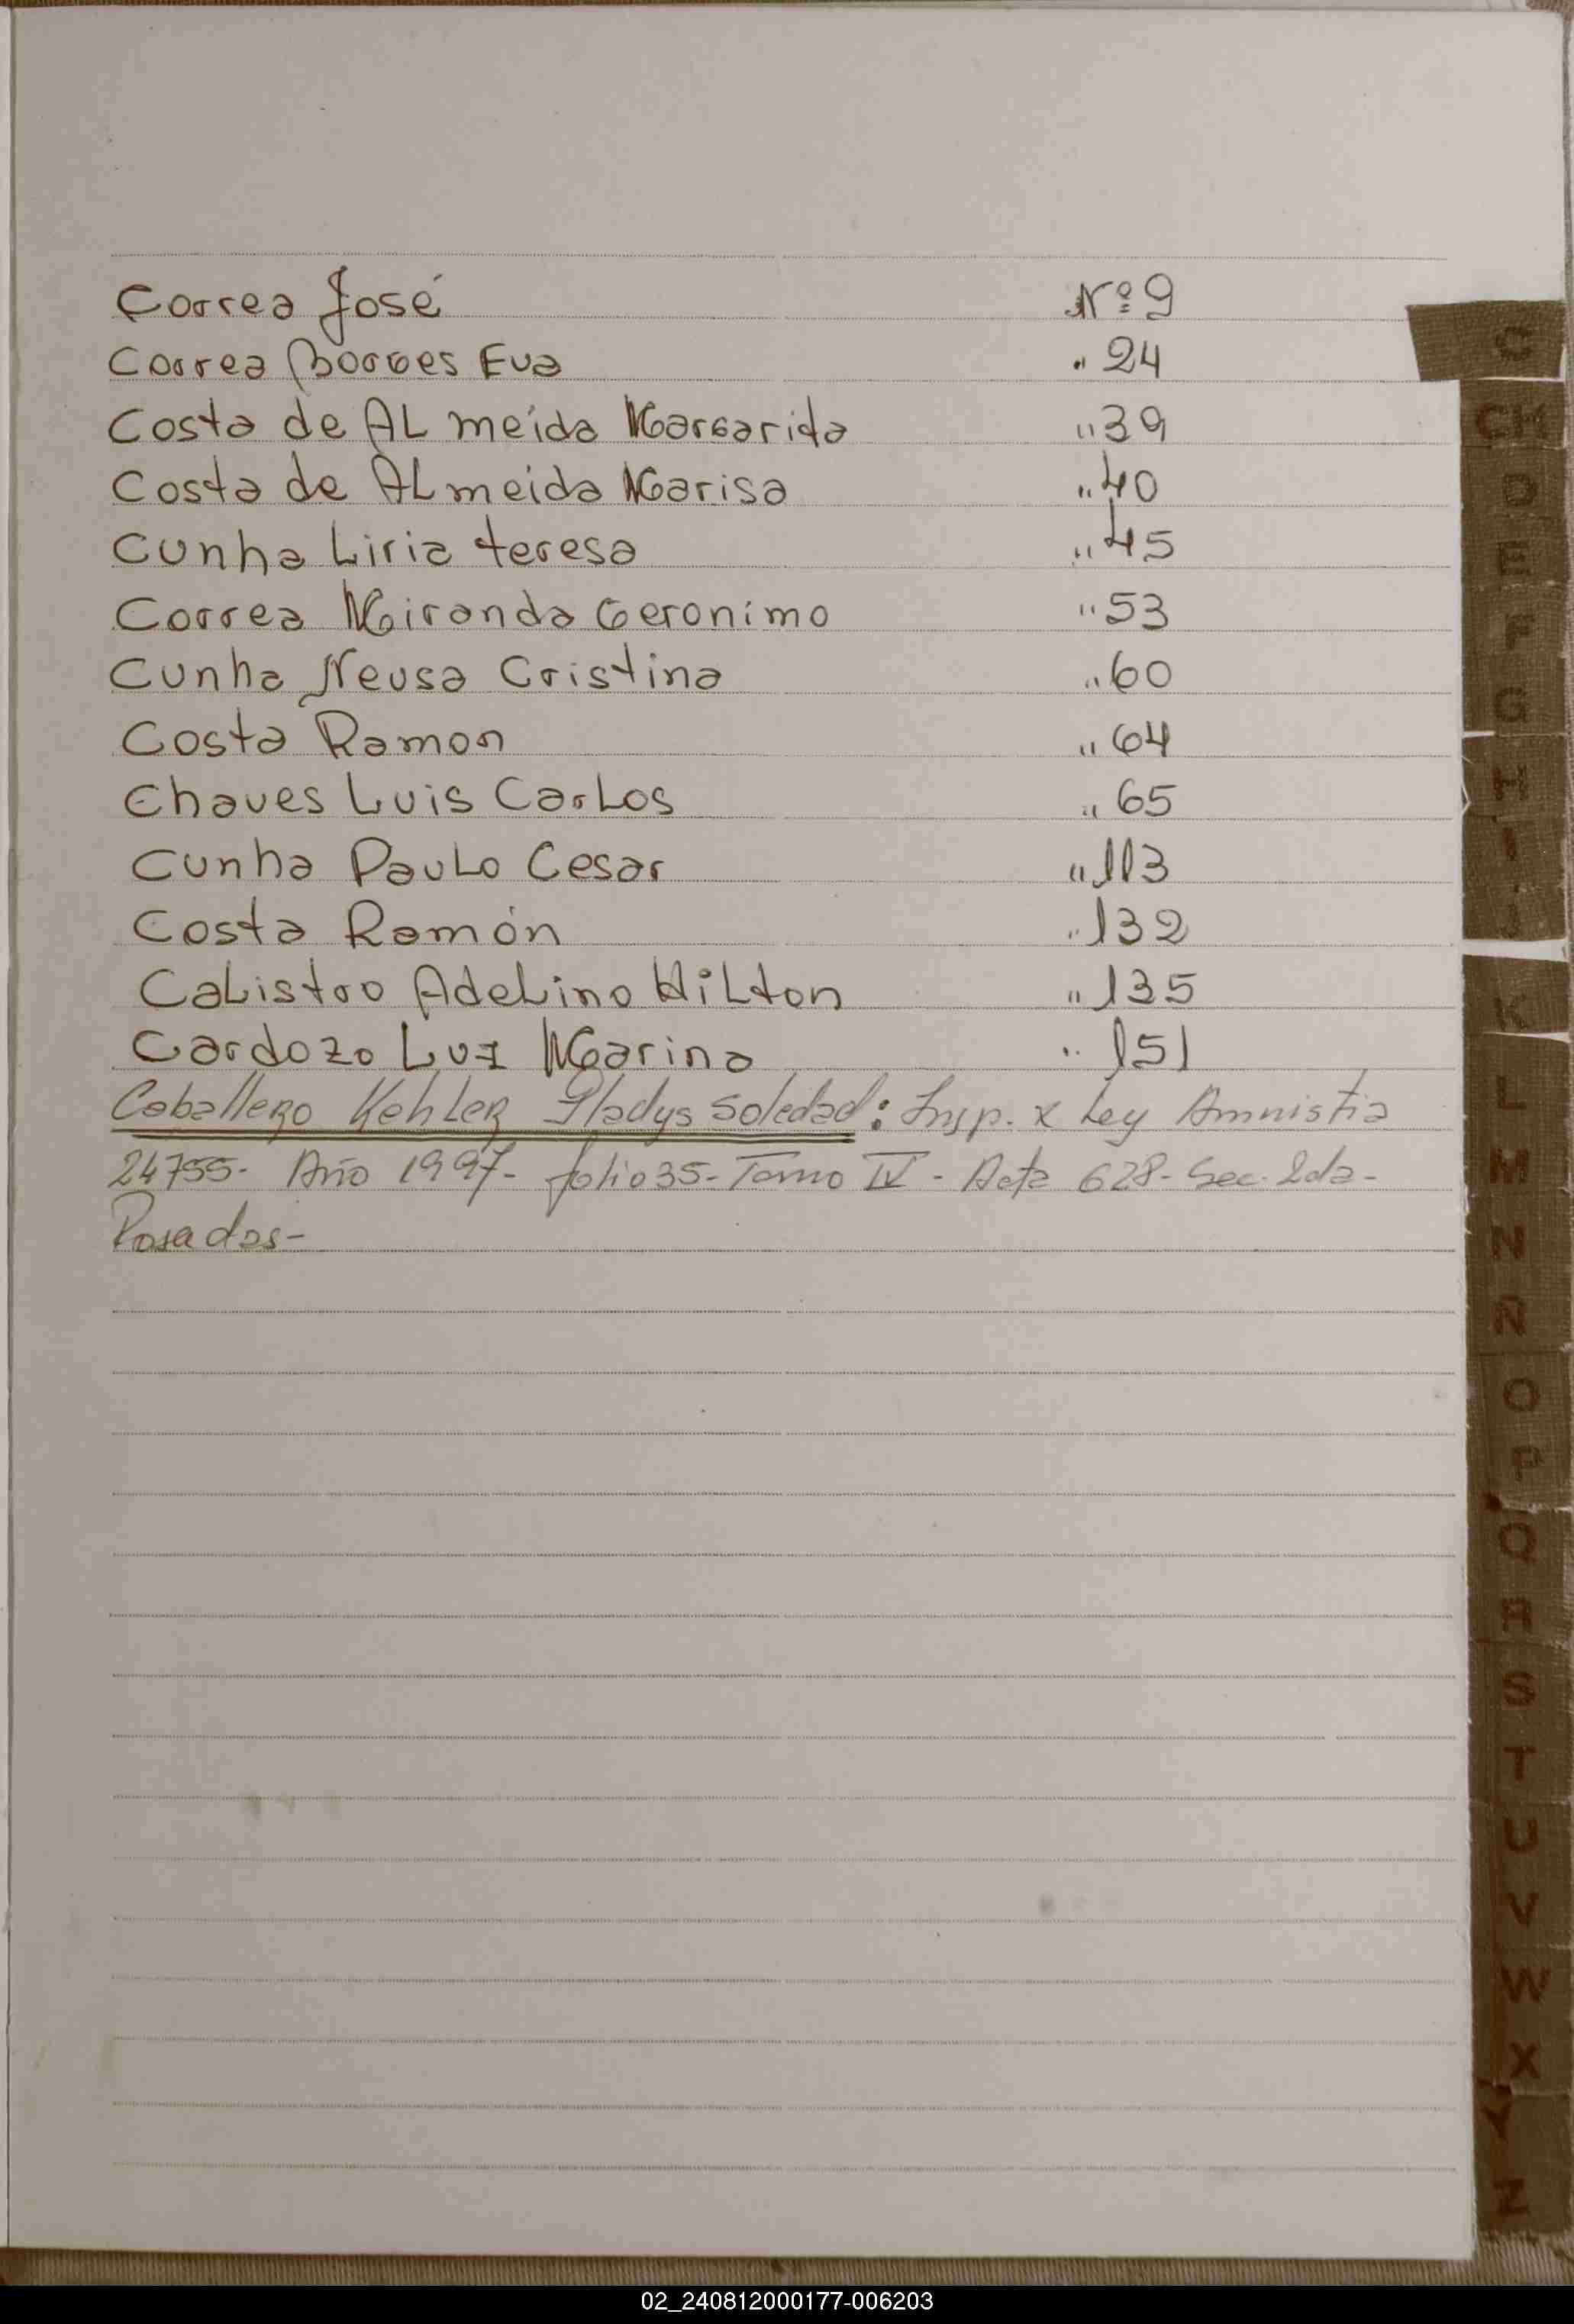 Correa José Nº 9
Correa Borges Eva " 24
Costa de ALmeida Margarida " 39
Costa de ALmeida Marisa " 40
Cunha Liria teresa " 45
Correa Miranda Geronimo " 53
Cunha Neusa Cristina " 60
Costa Ramon " 64
Chaves Luis CarLos " 65
Cunha PauLo Cesar " 113
Costa Ramón " 132
CaListro AdeLino HiLton " 135
Cardozo Luz Marina " 151
Caballero Kehler Gladys Soledad: Insp. x Ley Amnistia
24755- Año 1997- folio 35- Tomo IV - Acta 628- Sec. 2da-
Posadas-
C
CH
D
E
F
G
H
I
J
K
L
M
N
Ñ
O
P
Q
R
S
T
U
V
W
X
Y
Z
02_240812000177-006203